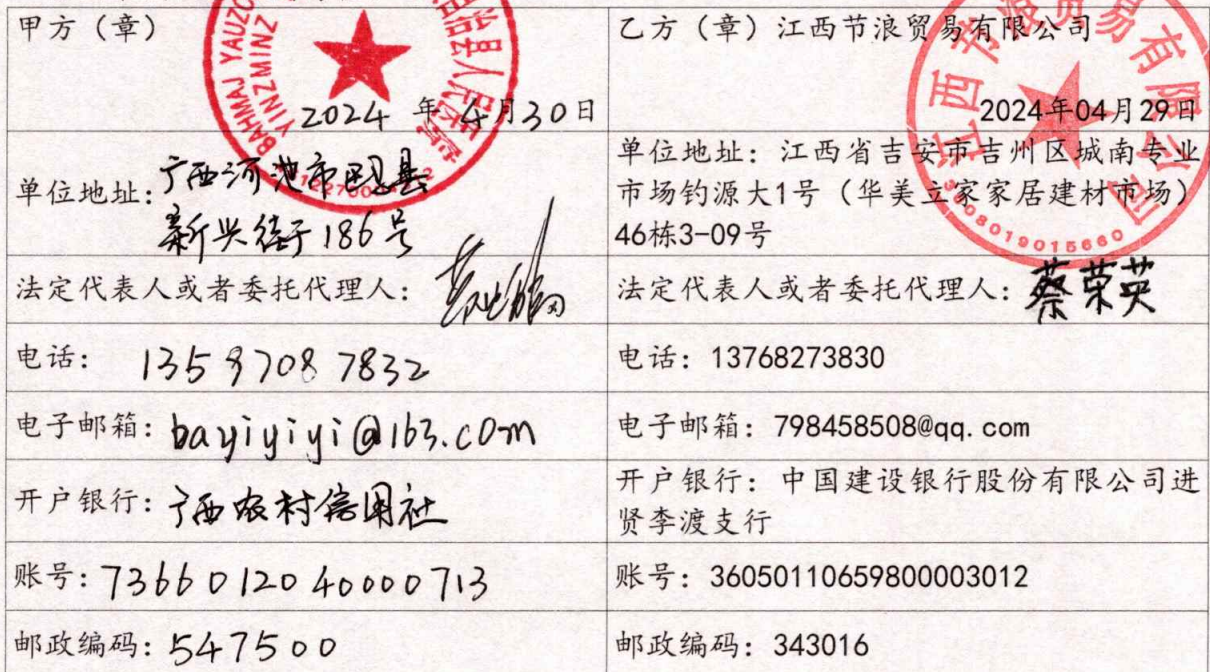 甲方（章）
BAHMAJ YAUZO
YINZMINZ
治县人民医院
2024 年 4月30日
乙方（章）江西节浪贸易有限公司
江西节浪贸易有限公司
2024年04月29日
3608019015660
单位地址：广西河池市巴马县
新兴街186号
单位地址：江西省吉安市吉州区城南专业
市场钓源大1号（华美立家家居建材市场）
46栋3-09号
法定代表人或者委托代理人：
法定代表人或者委托代理人：蔡荣英
电话： 13597087832
电话：13768273830
电子邮箱：bayiyiyi@163.com
电子邮箱：798458508@qq.com
开户银行：广西农村信用社
开户银行：中国建设银行股份有限公司进
贤李渡支行
账号：7366012040000713
账号：36050110659800003012
邮政编码：547500
邮政编码：343016